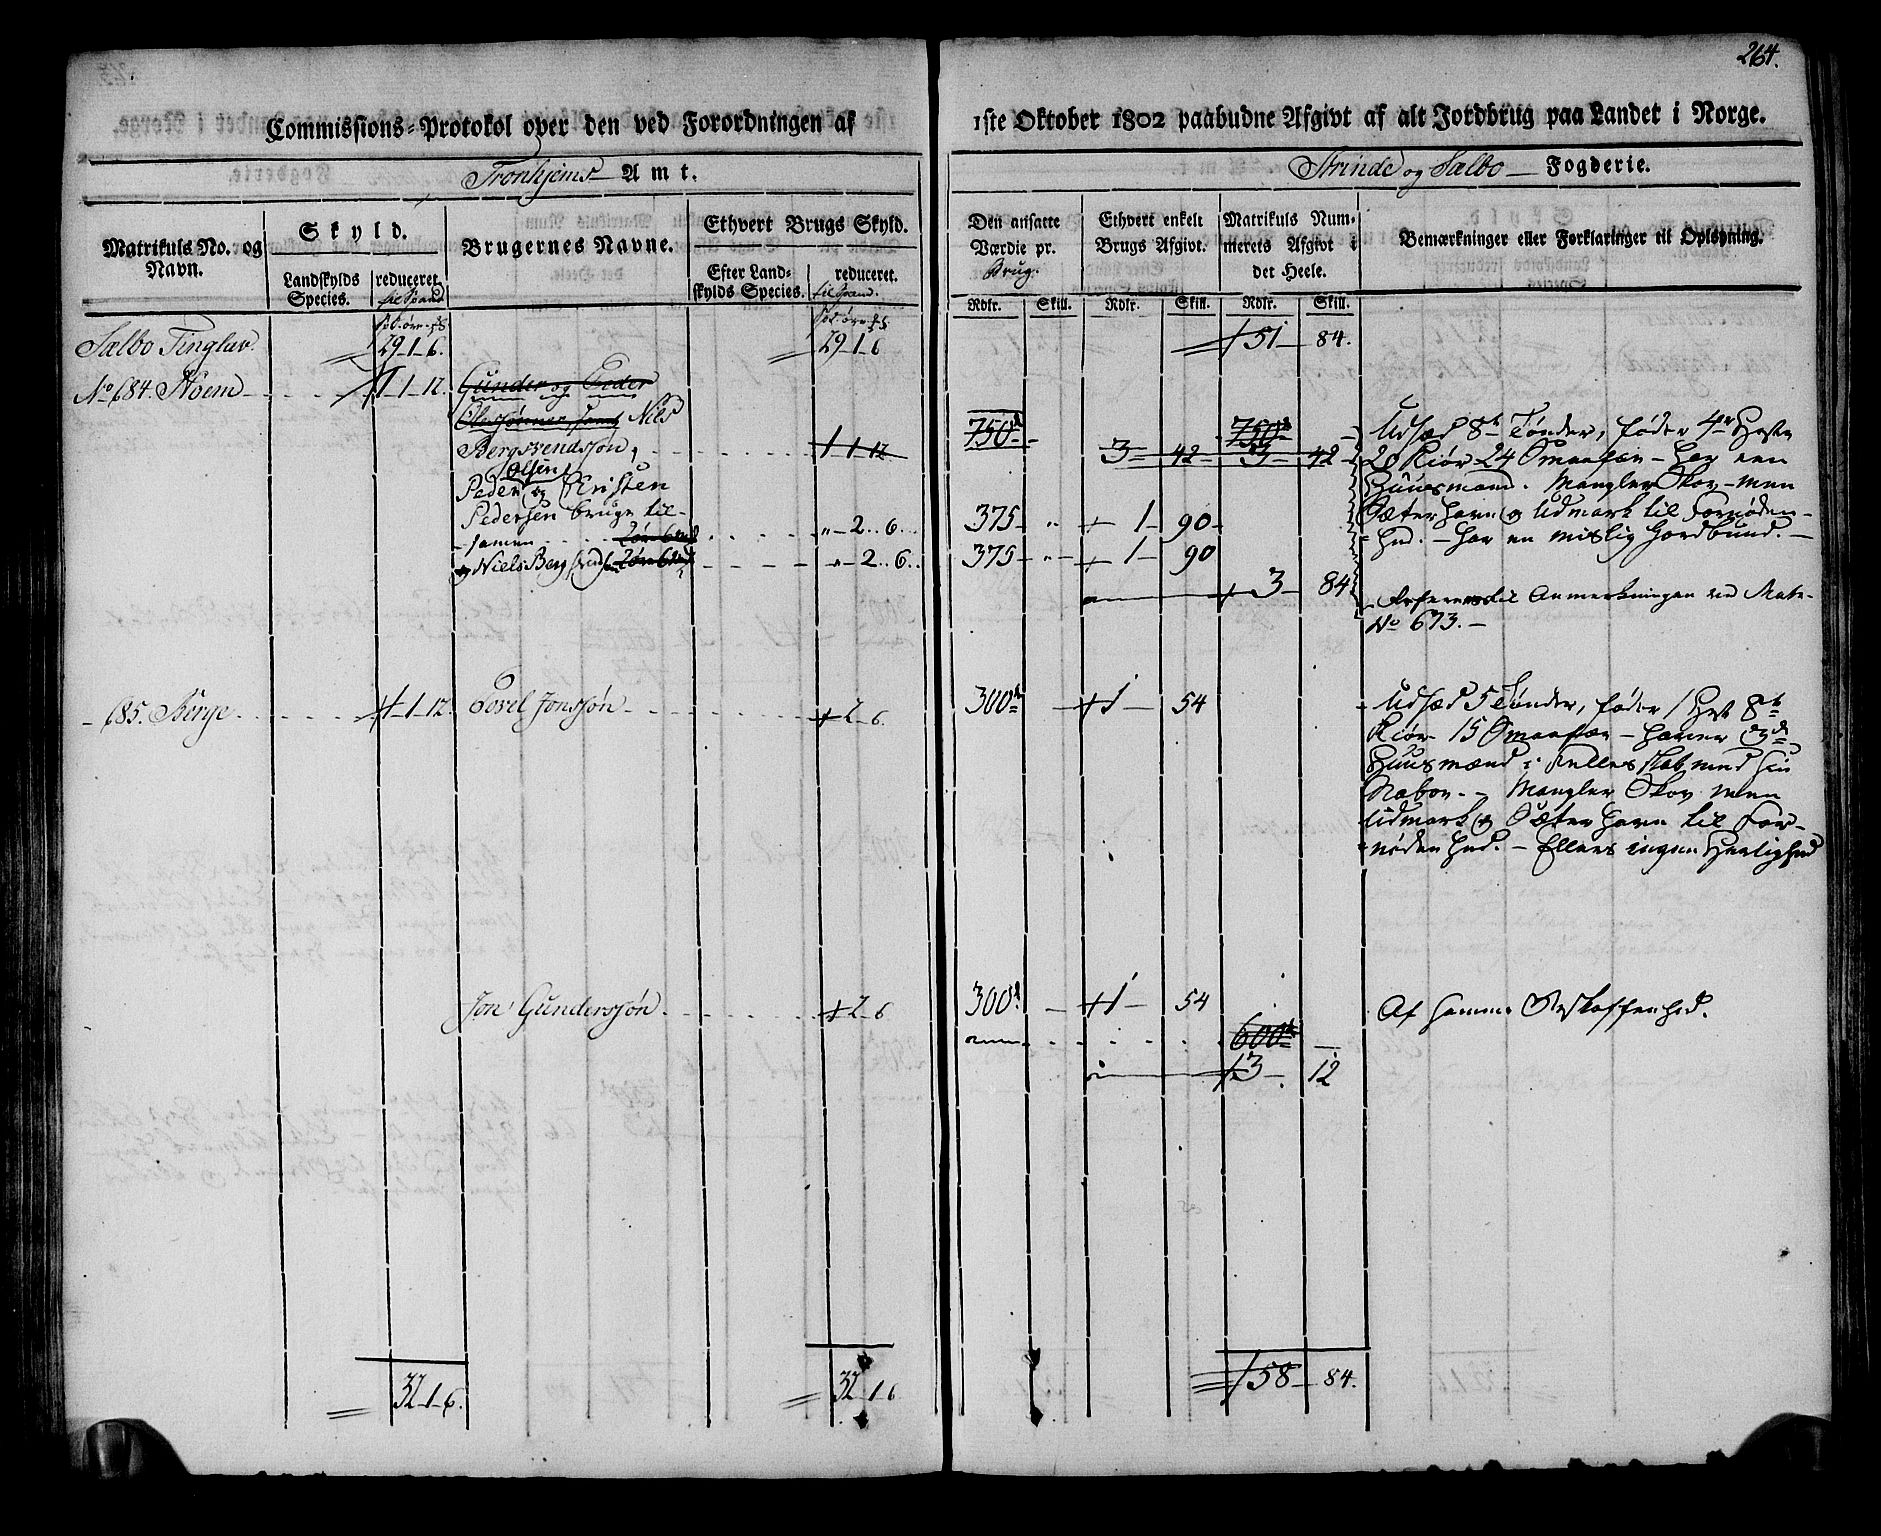 264.
Commissions-Protokol over den ved Forordningen af 1ste Oktober 1802 paabudne Afgivt af alt Jordbrug paa Landet i Norge.
Tronhjems Amt. Strinde og Sælbo Fogderie.
Matrikuls No. og Navn.
Skyld.
Landskylds Species.
reduceret til Spand
Brugernes Navne.
Ethvert Brugs Skyld.
Efter Landskylds Species.
reduceret. til Spand.
Den ansatte Værdie pr. Brug.
Ethvert enkelt Brugs Afgivt.
Matrikuls Nummerets Afgivt i det Heele.
Bemærkninger eller Forklaringer til Oplysning.
Rdlr. Skill. Rdlr. Skill. Rdlr. Skill.
Sælbo Tinglav. 29-1-6. 29-1-6 151- 84.
No 684. Moem 1-1-12. Gunder og Peder
Olessønner, samt Niels
Bergsvendssøn, 1 1-12 750 3- 42- 750 3- 42
Olsen
Peder og Christen
Pedersen bruge til-
samen 2..6. 375- 1- 90-
og Niels Bergsvendsen 2..6. 375- 1- 90
3- 84
Udsæd 8te Tønder, føder 4re Heste
20 Kiør 24 Smaafæe - har een
Huusmand. Mangler Skov - men
Sæterhavn og Udmark til Fornøden-
hed. - har en mislig Jordbund. -
Refereres til Anmerkningen ved Matr.
No 673. -
685. Berge 1-1-12. Povel Jonssøn 2-6 300 1- 54
Udsæd 5 Tønder, føder 1 Hest 8te
Kiør 15 Smaafæe - haver
Huusmænd i Fellesskab med sin
Naboe. - Mangler Skov men
Udmark og Sæterhavn til For-
nødenhed. - Ellers ingen Herlighed
Jon Gunderssøn 2-6 300 1- 54 Af samme Beskaffenhed.
600
3- 12
32-1-6. 32-1-6 158- 84.